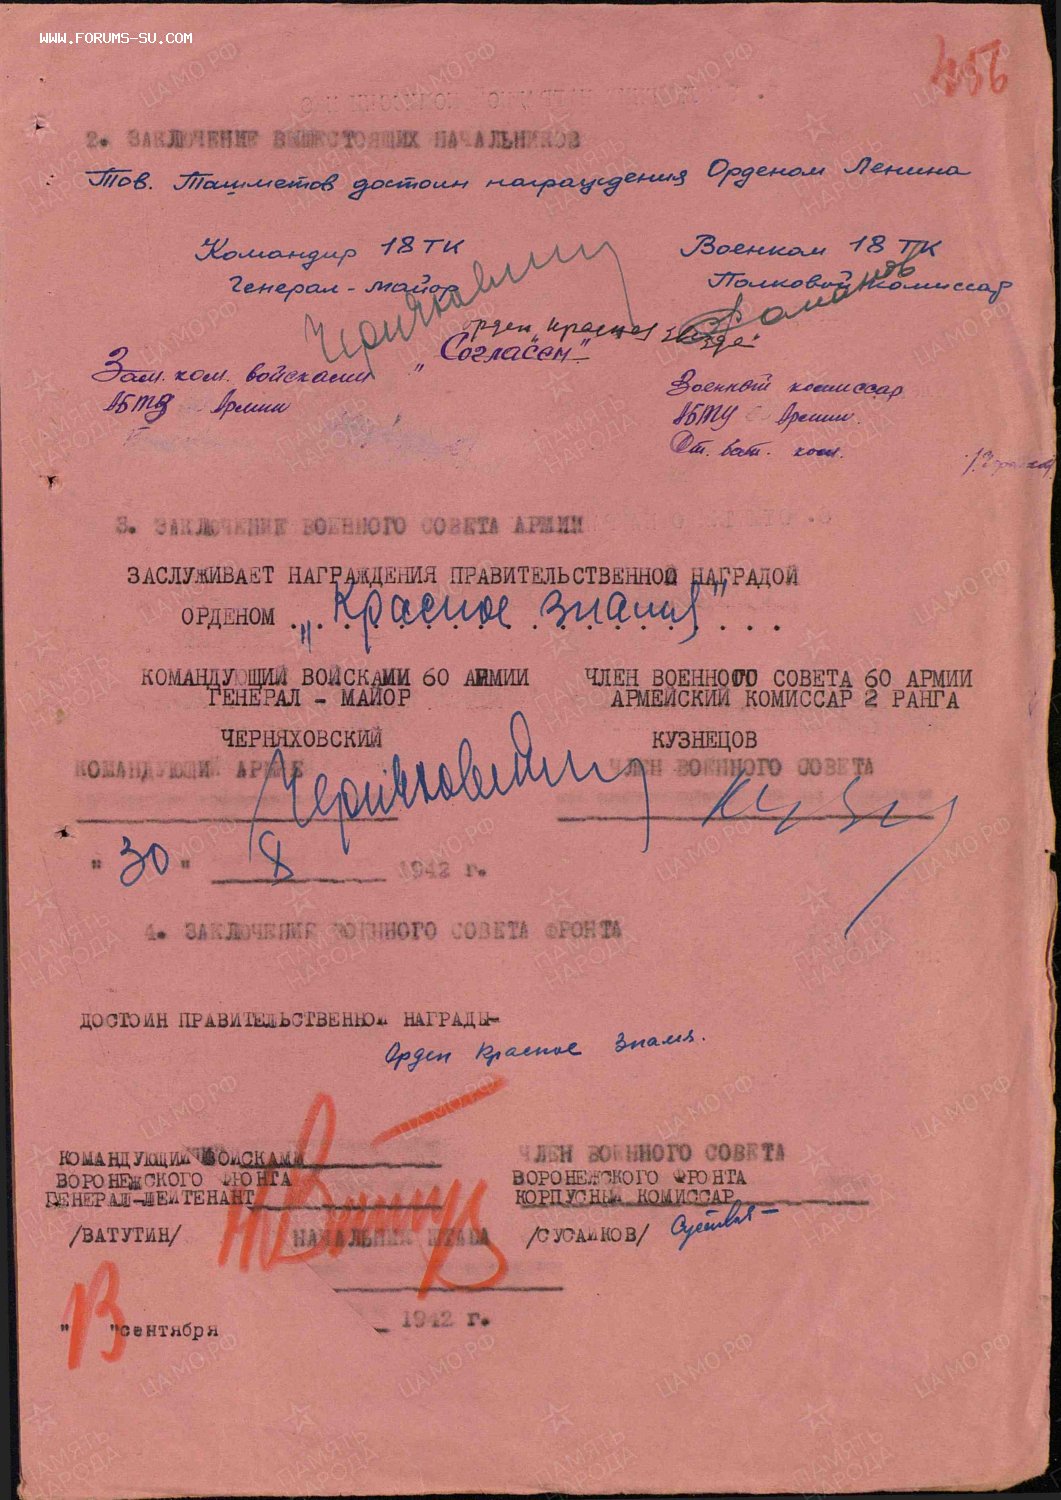 WWW.FORUMS-SU.COM
2. ЗАКЛЮЧЕНИЕ ВЫШЕСТОЯЩИХ НАЧАЛЬНИКОВ
Тов. Ташметов достоин награждения Орденом Ленина
Командир 18 ТК
Генерал-майор
Черняховский
Военком 18 ТК
Полковой комиссар
орден "Красная звезда"
"Согласен"
Зам. ком. войсками
АБТВ Армии
Военный комиссар
АБТУ Армии.
Ст. бат. ком.
3. ЗАКЛЮЧЕНИЕ ВОЕННОГО СОВЕТА АРМИИ
ЗАСЛУЖИВАЕТ НАГРАЖДЕНИЯ ПРАВИТЕЛЬСТВЕННОЙ НАГРАДОЙ
ОРДЕНОМ "Красное знамя"
КОМАНДУЮЩИЙ ВОЙСКАМИ 60 АРМИИ
ГЕНЕРАЛ - МАЙОР
ЧЕРНЯХОВСКИЙ
КОМАНДУЮЩИЙ АРМИЕ
Черняховский
ЧЛЕН ВОЕННОГО СОВЕТА 60 АРМИИ
АРМЕЙСКИЙ КОМИССАР 2 РАНГА
КУЗНЕЦОВ
ЧЛЕН ВОЕННОГО СОВЕТА
"30" 8 1942 г.
4. ЗАКЛЮЧЕНИЯ ВОЕННОГО СОВЕТА ФРОНТА
ДОСТОИН ПРАВИТЕЛЬСТВЕННОЙ НАГРАДЫ-
Орден Красное Знамя.
КОМАНДУЮЩИЙ ВОЙСКАМИ
ВОРОНЕЖСКОГО ФРОНТА
ГЕНЕРАЛ-ЛЕЙТЕНАНТ
/ВАТУТИН/
НАЧАЛЬНИК ШТАБА
ЧЛЕН ВОЕННОГО СОВЕТА
ВОРОНЕЖСКОГО ФРОНТА
КОРПУСНЫЙ КОМИССАР
/СУСАЙКОВ/
"13" сентября 1942 г.
ЦАМО.РФ
ПАМЯТЬ
НАРОДА